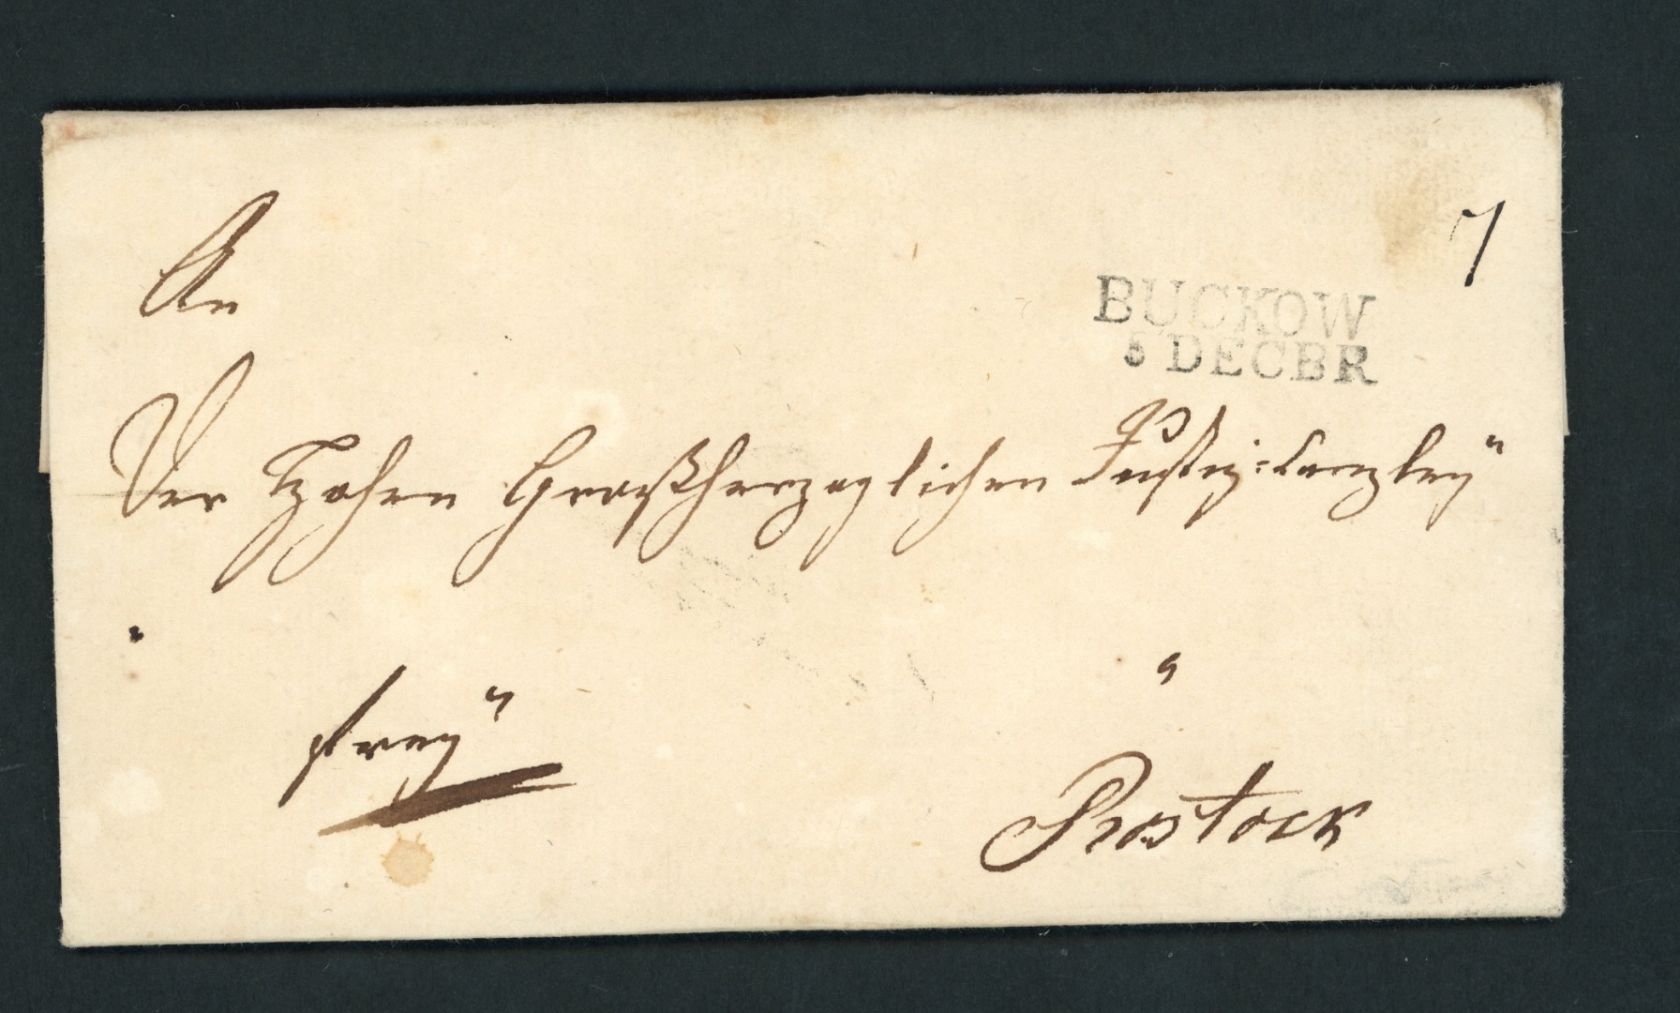 An
7
BUCKOW
5 DECBR
Der Hohen Großherzoglichen Justiz-Canzley
frey
Rostock